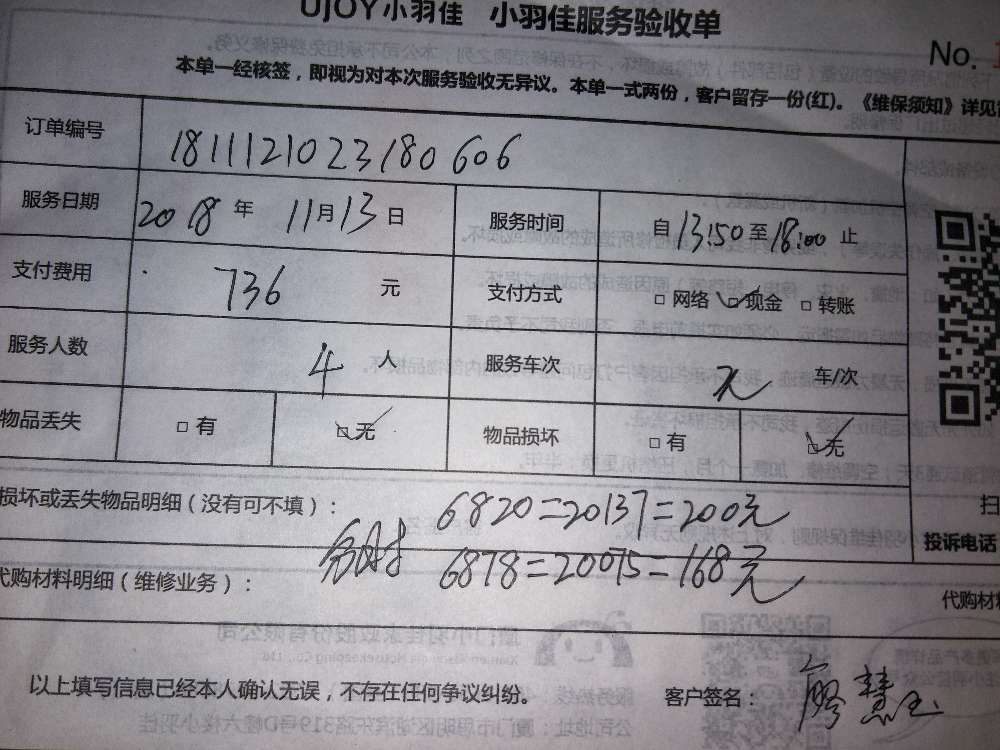 UJOY小羽佳 小羽佳服务验收单
No.
本单一经核签，即视为对本次服务验收无异议。本单一式两份，客户留存一份(红)。《维保须知》详见
订单编号 181112102３180606
服务日期 2018 年 11月13日 服务时间 自13:50至18:00止
支付费用 736 元 支付方式 □网络 ☑现金 □转账
服务人数 4 人 服务车次 2 车/次
物品丢失 □有 ☑无 物品损坏 □有 ☑无
损坏或丢失物品明细（没有可不填）： 6820=20137=200元
6878=20075=168元
代购材料明细（维修业务）：
扫
投诉电话
代购材
以上填写信息已经本人确认无误，不存在任何争议纠纷。 客户签名：廖慧玉